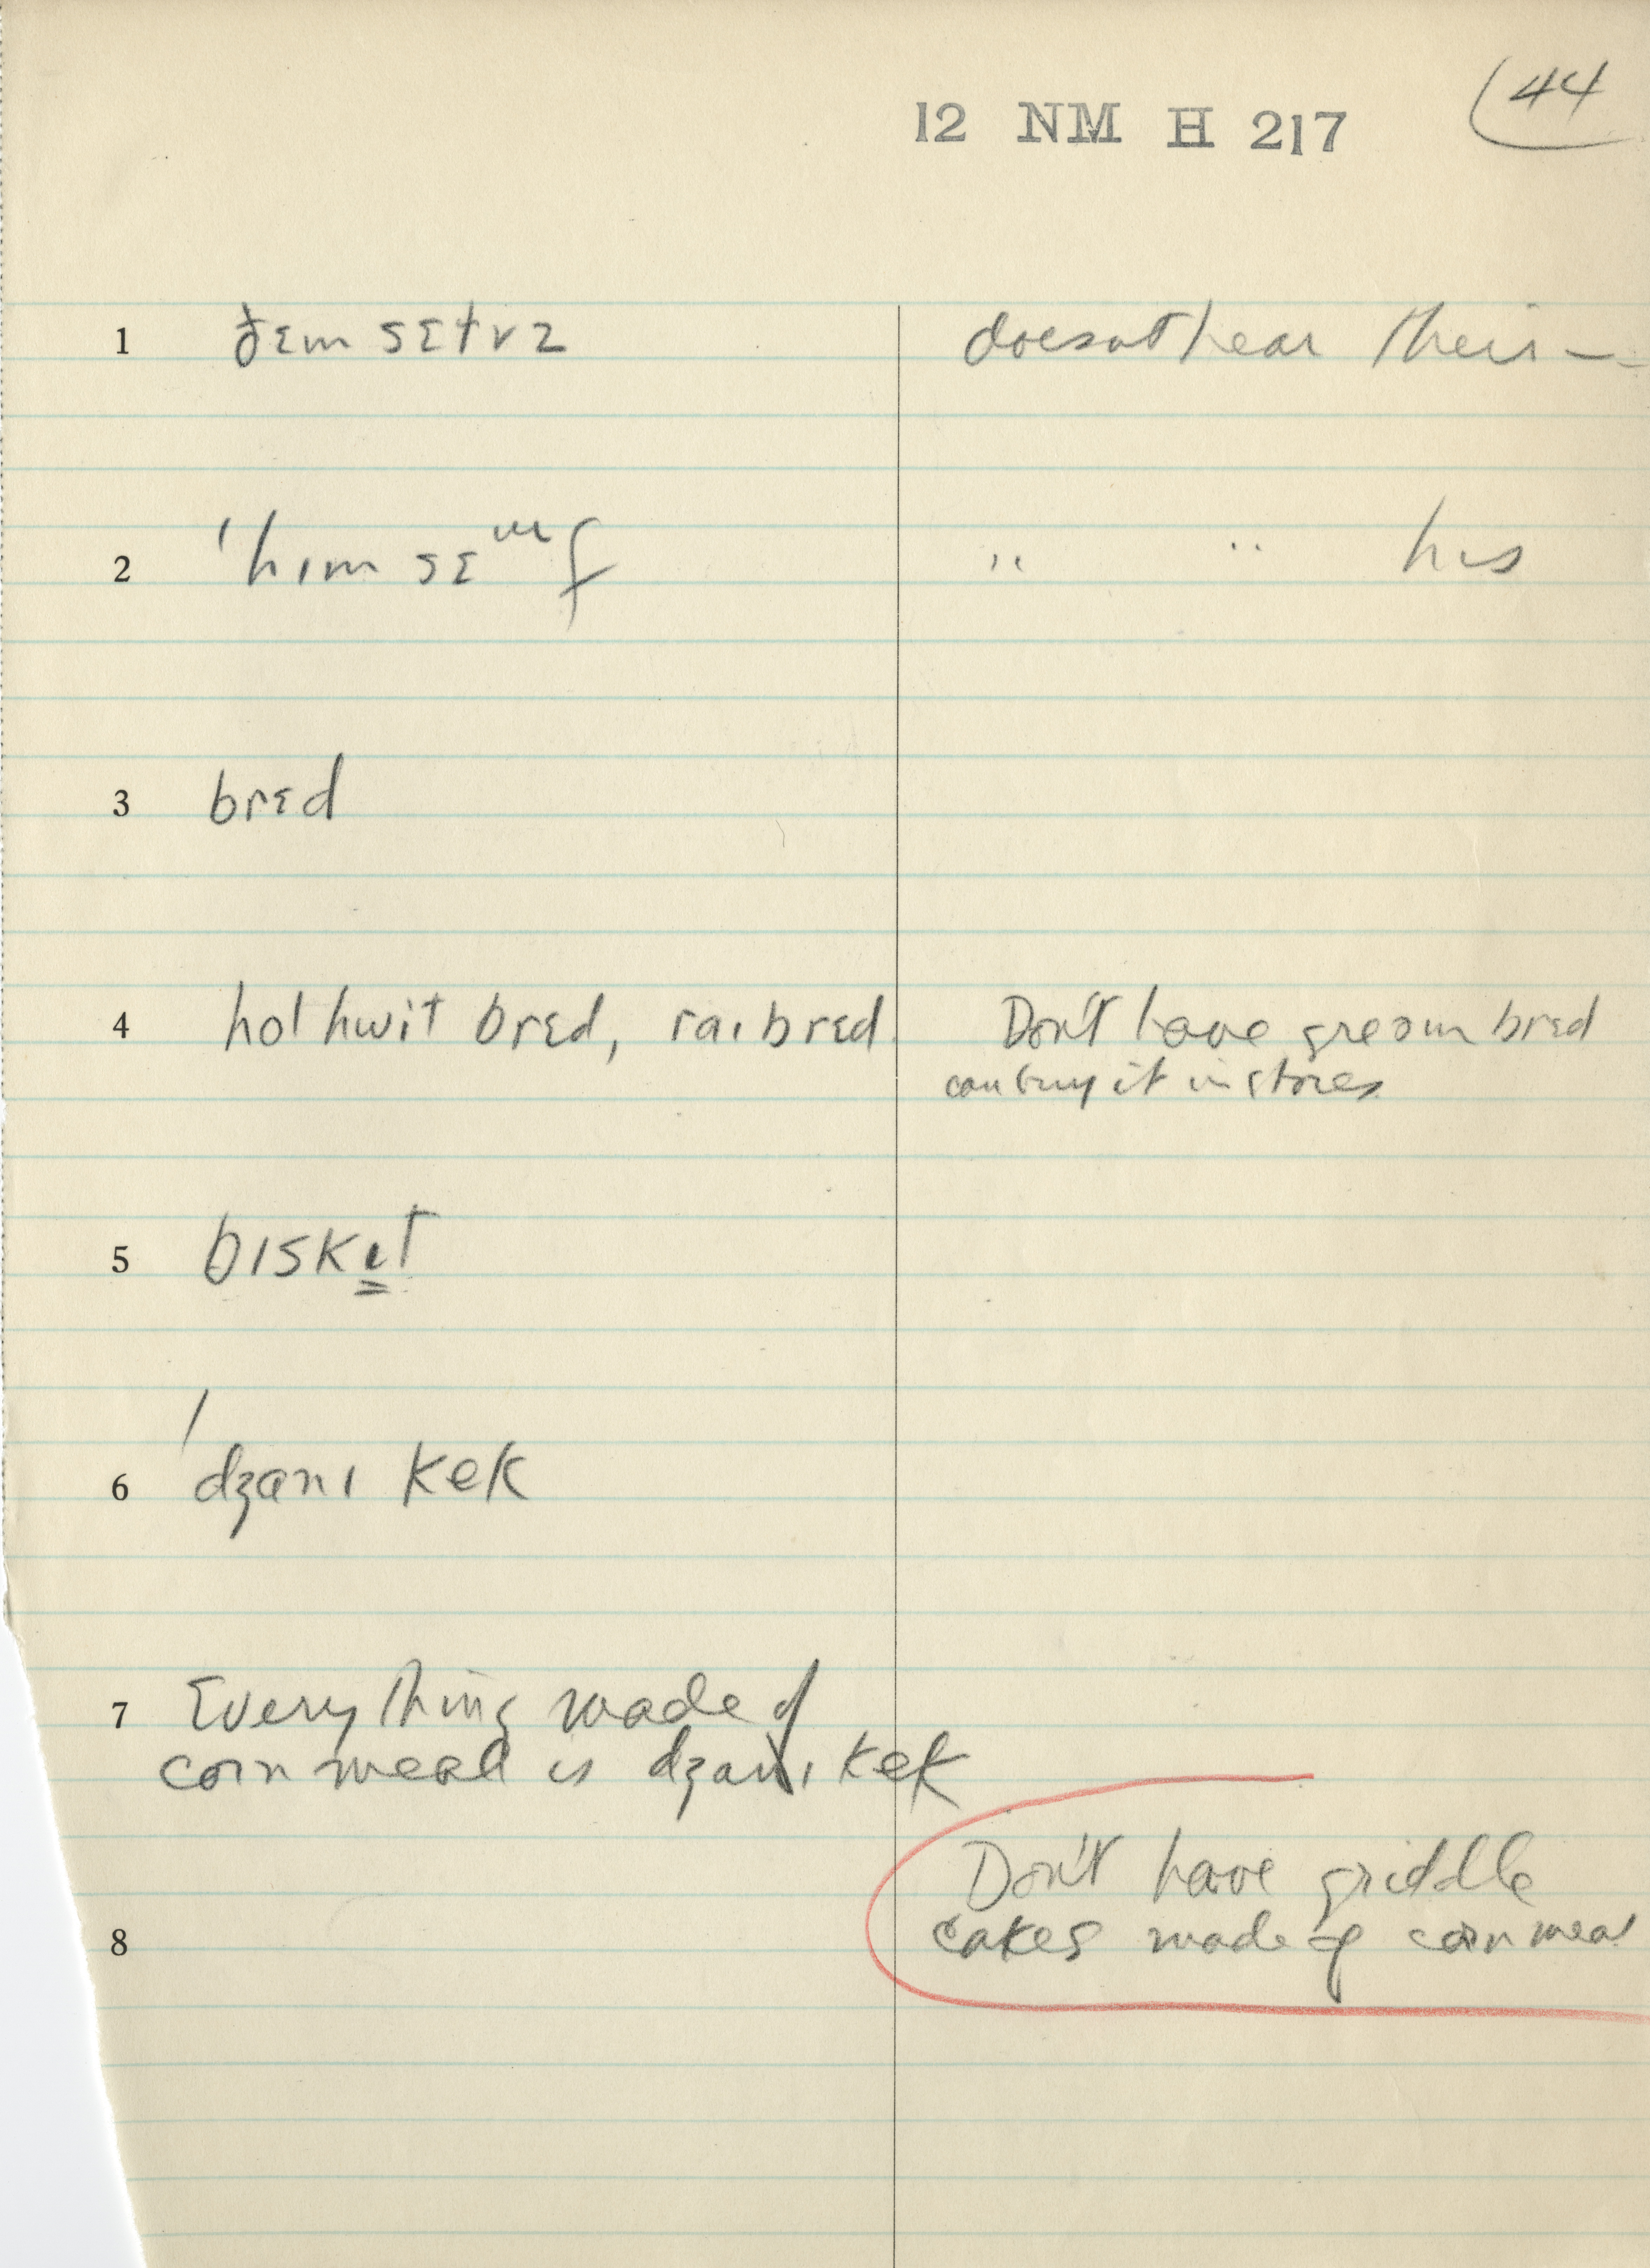 12 NM H 217
44
1 ðɛm sɛɫvz doesnt hear their —
2 ˈhɪm sɛɯf " " his
3 brɛd
4 hot hwit brɛd, raɪ brɛd Don't have graoun brɛd
can buy it in stores
5 bɪskɪt
6 ˈdʒanɪ kek
7 Everything made of
corn meal is dʒanɪ kek
Don't have griddle
8 cakes made of corn meal